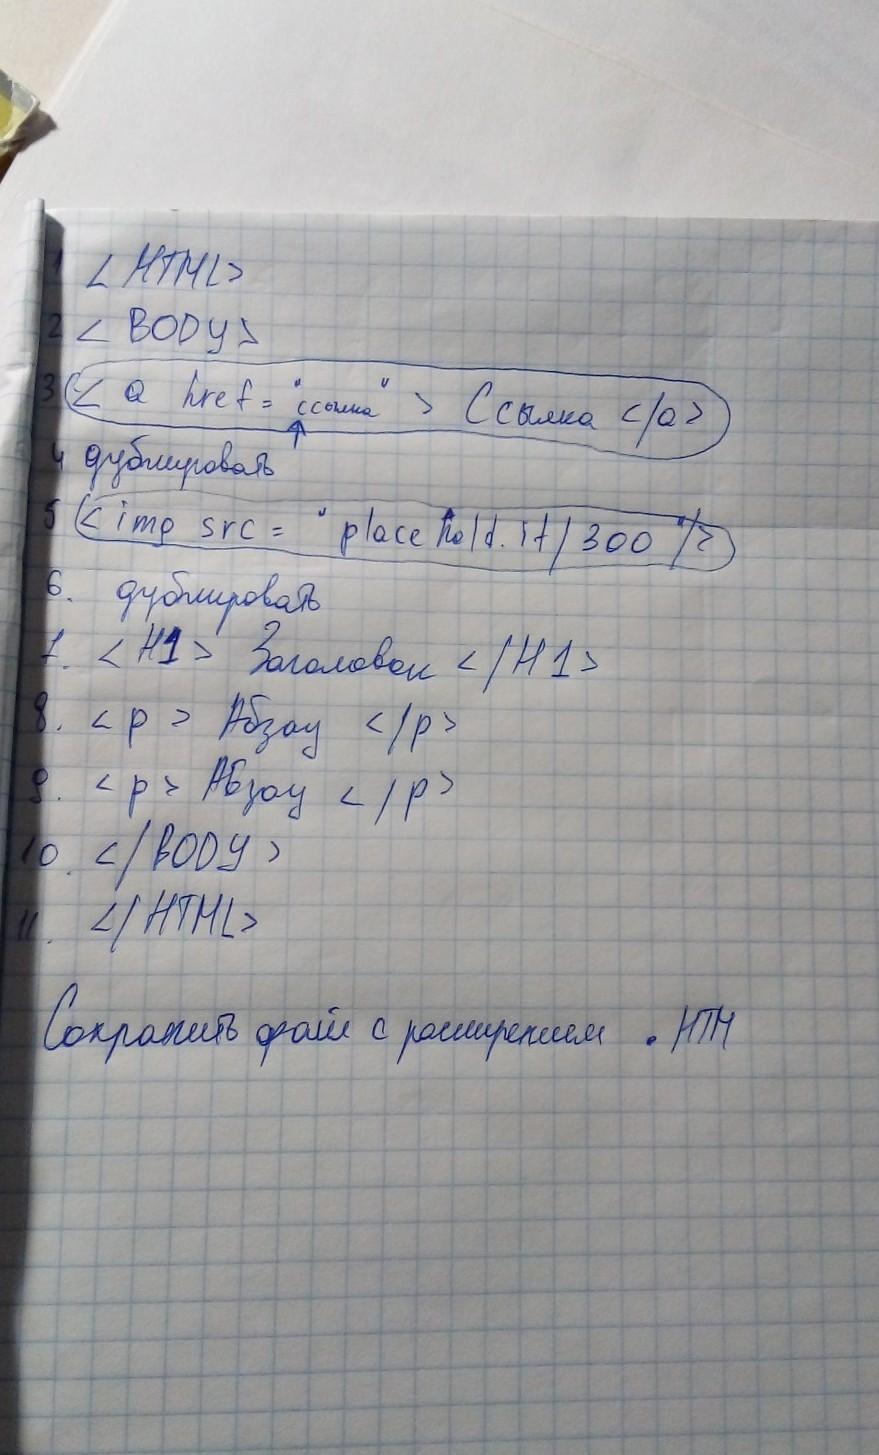 1 <HTML>
2 <BODY>
3 <a href="ссылка"> Ссылка </a>
4 дублировать
5 <img src="placehold.it/300"/>
6. дублировать
7. <H1> Заголовок </H1>
8. <p> Абзац </p>
9. <p> Абзац </p>
10. </BODY>
11. </HTML>
Сохранить файл с расширением .HTM